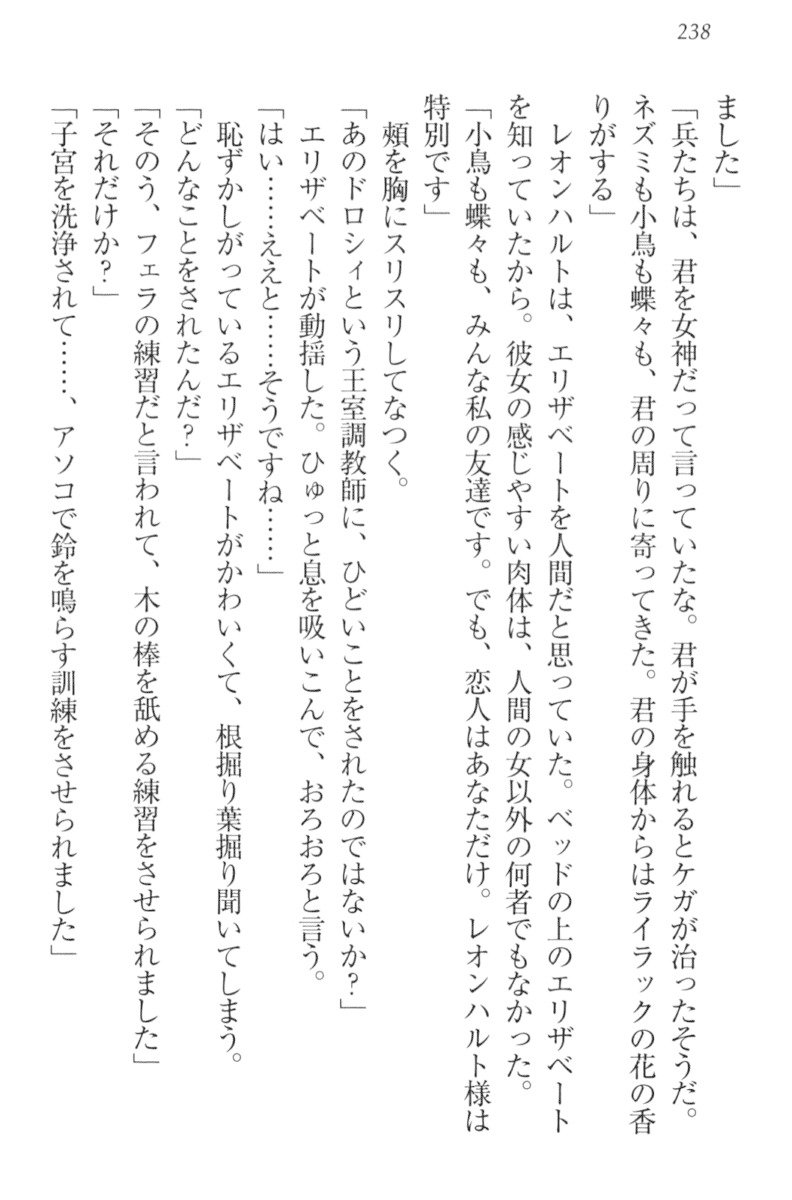 238
ました」
「兵たちは、君を女神だって言っていたな。君が手を触れるとケガが治ったそうだ。
ネズミも小鳥も蝶々も、君の周りに寄ってきた。君の身体からはライラックの花の香
りがする」
レオンハルトは、エリザベートを人間だと思っていた。ベッドの上のエリザベート
を知っていたから。彼女の感じやすい肉体は、人間の女以外の何者でもなかった。
「小鳥も蝶々も、みんな私の友達です。でも、恋人はあなただけ。レオンハルト様は
特別です」
頰を胸にスリスリしてなつく。
「あのドロシィという王室調教師に、ひどいことをされたのではないか?」
エリザベートが動揺した。ひゅっと息を吸いこんで、おろおろと言う。
「はい……ええと……そうですね……」
恥ずかしがっているエリザベートがかわいくて、根掘り葉掘り聞いてしまう。
「どんなことをされたんだ?」
「そのう、フェラの練習だと言われて、木の棒を舐める練習をさせられました」
「それだけか?」
「子宮を洗浄されて……、アソコで鈴を鳴らす訓練をさせられました」